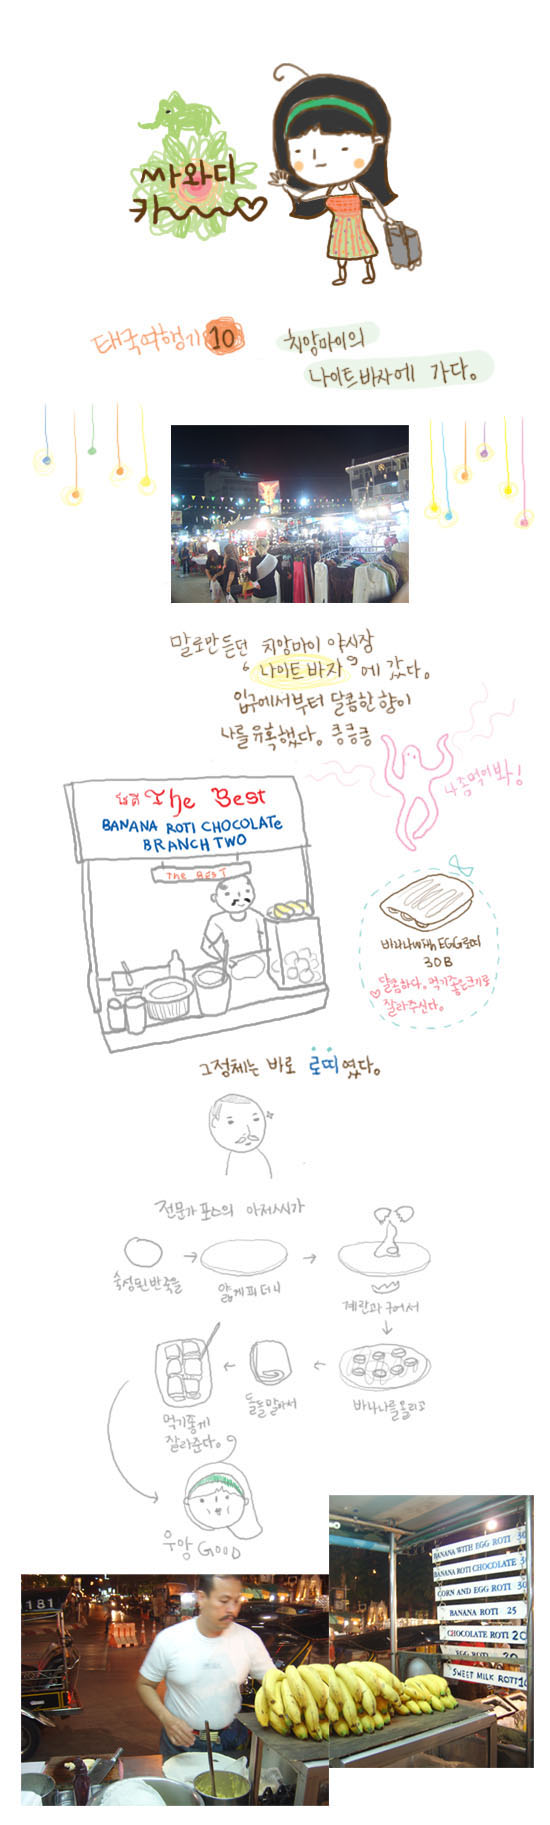 싸와디
카~~~♡
태국여행기 10
치앙마이의
나이트바자에 가다.
말로만 듣던 치앙마이 야시장
"나이트바자"에 갔다.
입구에서부터 달콤한 향이
나를 유혹했다. 킁킁킁
나 좀 먹어봐!
The Best
BANANA ROTI CHOCOLATE
BRANCH TWO
THE BEST
바나나with EGG로띠
30B
달콤하다. 먹기좋은크기로
잘라주신다.
그정체는 바로 로띠였다.
전문가 포스의 아저씨가
숙성된반죽을
얇게피더니
계란과 구어서
바나나를올리고
돌돌말아서
먹기좋게
잘라준다.
우앙 GOOD
181
BANANA WITH EGG ROTI 30
BANANA ROTI CHOCOLATE 3
CORN AND EGG ROTI 30
BANANA ROTI 25
CHOCOLATE ROTI 20
EGG ROTI 20
SWEET MILK ROTI 1